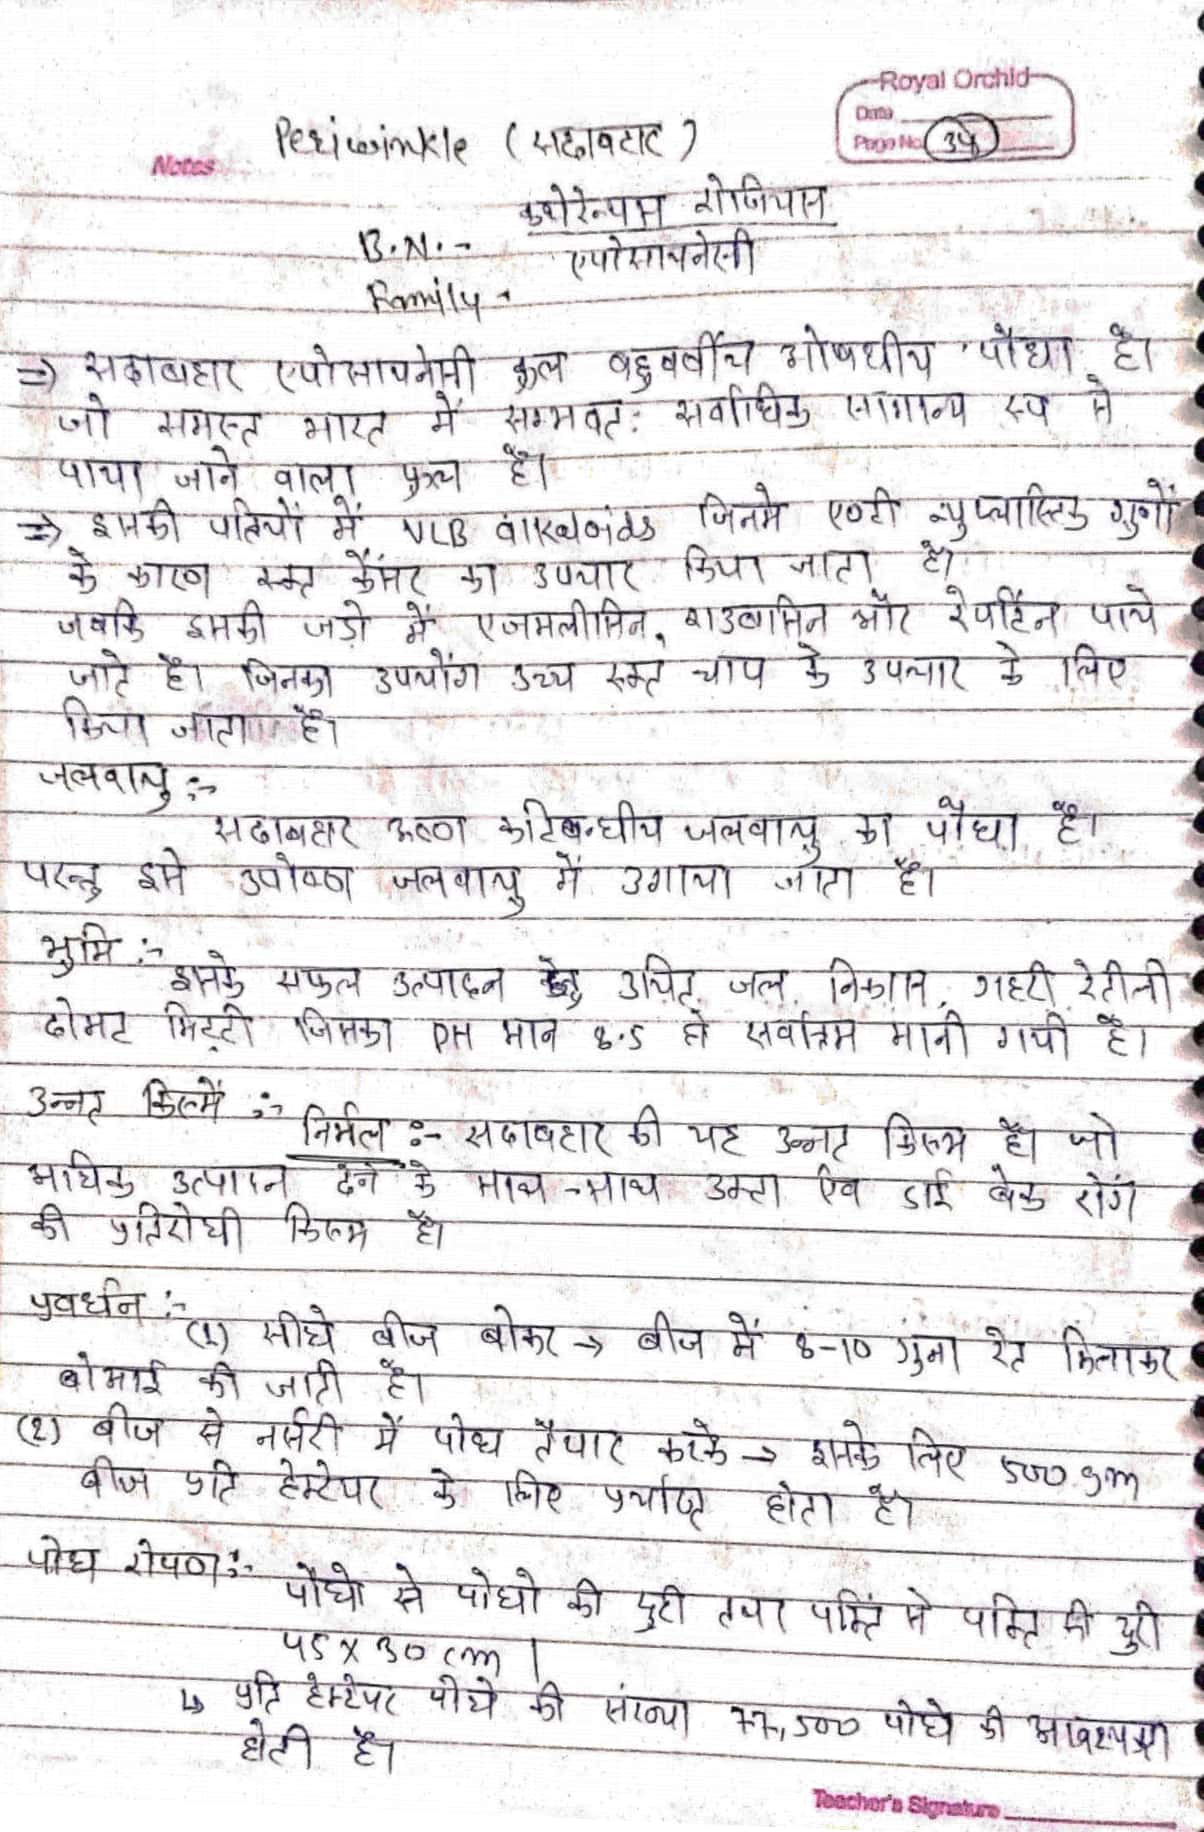 Royal Orchid
Date
Page No. 34
Notes
Periwinkle (सदाबहार)
B.N.:- कथेरेन्थस रोजियस
Family - एपोसायनेसी
⇒ सदाबहार एपोसायनेसी कुल बहुवर्षीय औषधीय पौधा है।
जो समस्त भारत में सम्भवत: सर्वाधिक सामान्य रूप से
पाया जाने वाला फुल है।
⇒ इसकी पतियों में VLB जिनमे एण्टी न्युप्लास्टिक गुणों
के कारण रक्त कैंसर का उपचार किया जाता है।
जबकि इसकी जड़ो में एजमलीसिन, और पाये
जाते है। जिनका उपयोग उच्च रक्त चाप के उपचार के लिए
किया जाता है।
जलवायु :-
सदाबहार ऊष्ण कटिबन्धीय जलवायु का पौधा है।
परन्तु इसे उपोष्ण जलवायु में उगाया जाता है।
भुमि :-
इसके सफल उत्पादन हेतु उचित जल निकास, गहरी रेतीली
दोमट मिट्टी जिसका PH मान 8.5 हो सर्वोत्तम मानी गयी है।
उन्नत किस्में :-
निर्मल :- सदाबहार की यह उन्नत किस्म है। जो
अधिक उत्पादन देने के साथ-साथ उक्टा एंव डाई बेक रोग
की प्रतिरोधी किस्म है।
प्रवर्धन :-
(1) सीधे बीज बोकर → बीज में 8-10 गुना रेत मिलाकर
बोआई की जाती है।
(2) बीज से नर्सरी में पोध तैयार करके → इसके लिए 500 gm
बीज प्रति हेक्टेयर के लिए प्रर्याप्त होता है।
पोध रोपण:-
पौधो से पोधो की दुरी तथा पक्ति से पक्ति की दुरी
45 x 30 cm |
↳ प्रति हेक्टेयर पोधे की संख्या 77,500 पोधे की आवश्यकता
होती है।
Teacher's Signature